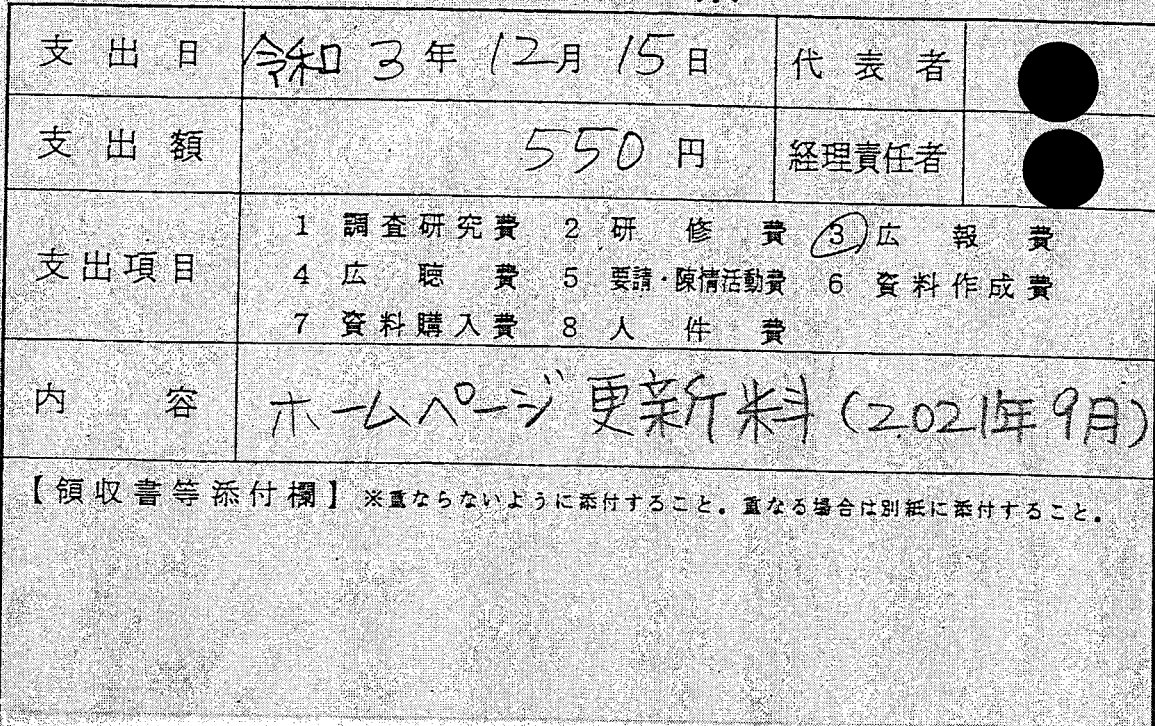 支出日 令和3年12月15日 代表者
支出額 550円 経理責任者
支出項目
1 調査研究費 2 研修費 3 広報費
4 広聴費 5 要請・陳情活動費 6 資料作成費
7 資料購入費 8 人件費
内容 ホームページ更新料(2021年9月)
【領収書等添付欄】 ※重ならないように添付すること。重なる場合は別紙に添付すること。